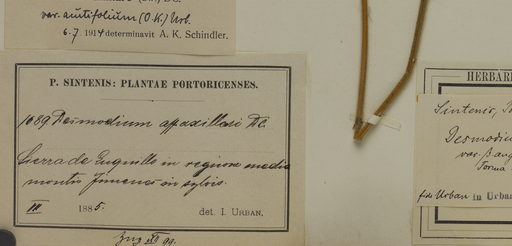 var. acutifolium (O.K.) Urb.
6.7. 1914 determinavit A. K. Schindler.
P. SINTENIS: PLANTAE PORTORICENSES.
1689 Desmodium axillare DC.
Sierra de Luquillo in regione media
montis Jimenes in sylvis.
1885. det. I. URBAN.
HERBAR
Sintenis,
Desmodiu
var. β ang
forma
fide Urban in Urba